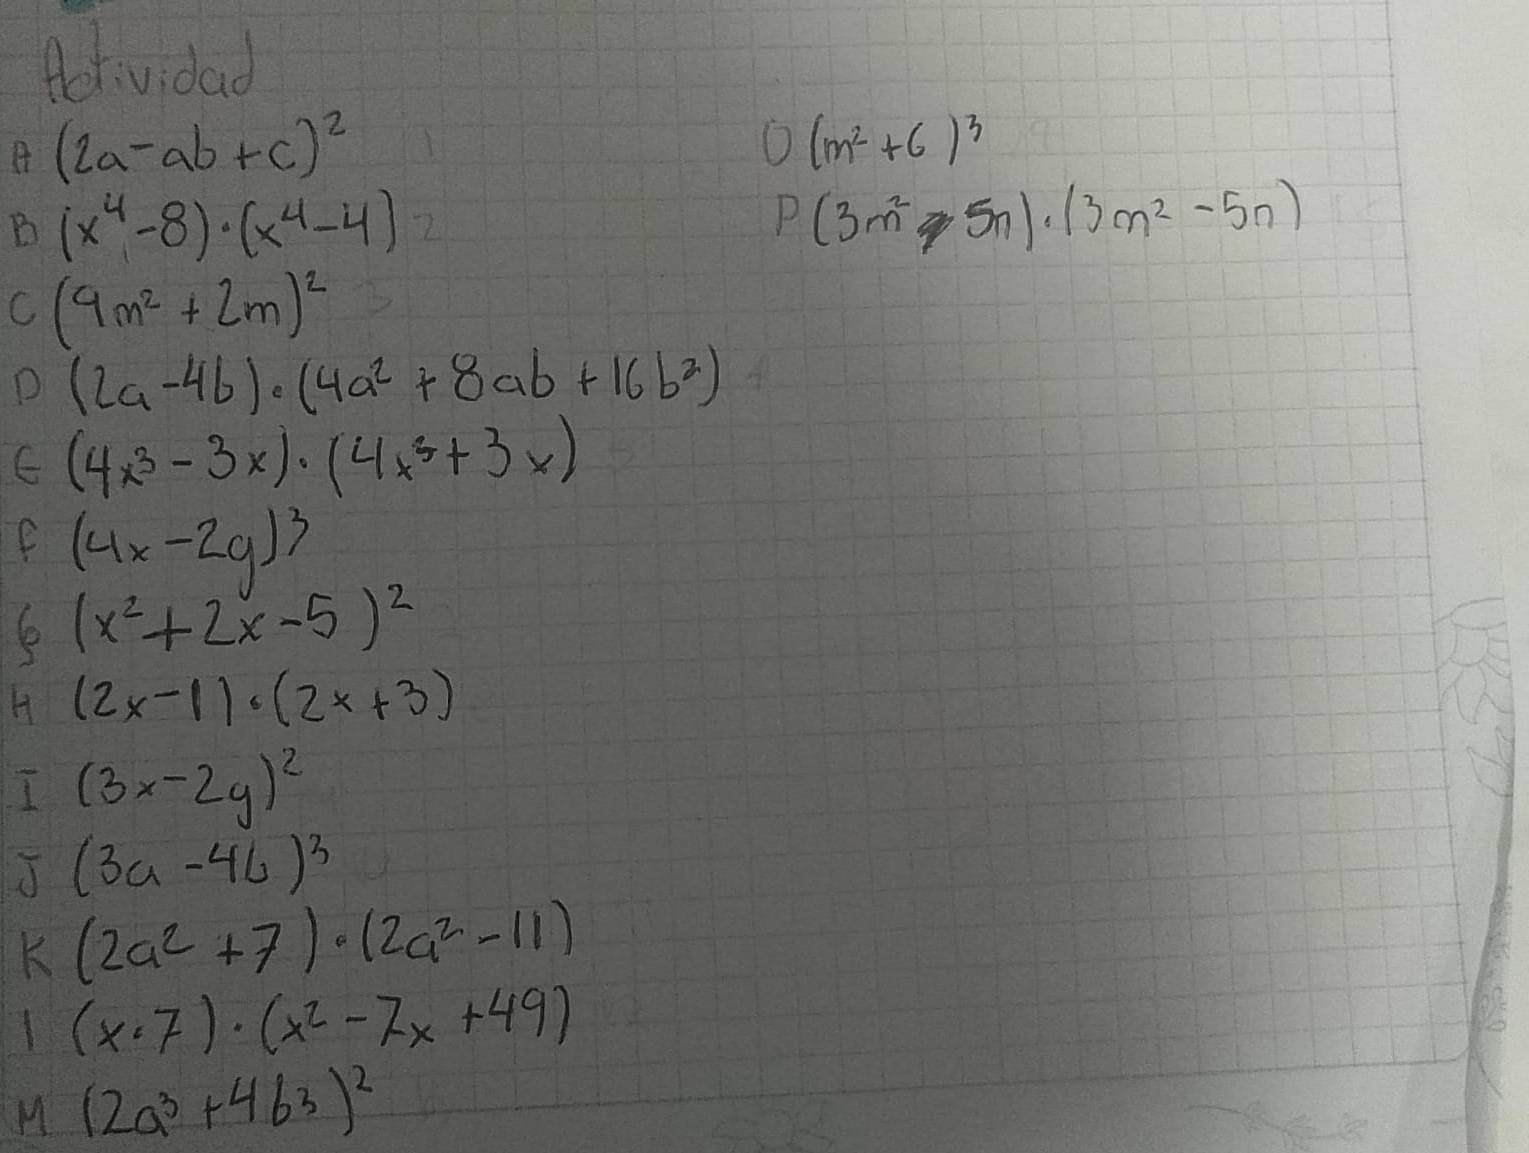 Actividad
A (2a-ab+c)²
B (x⁴-8)·(x⁴-4)
C (9m²+2m)²
D (2a-4b)·(4a²+8ab+16b²)
E (4x³-3x)·(4x³+3x)
F (4x-2y)³
G (x²+2x-5)²
H (2x-1)·(2x+3)
I (3x-2y)²
J (3a-4b)³
K (2a²+7)·(2a²-11)
l (x·7)·(x²-7x+49)
M (2a³+4b3)²
O (m²+6)³
P (3m² 5n)·(3m²-5n)